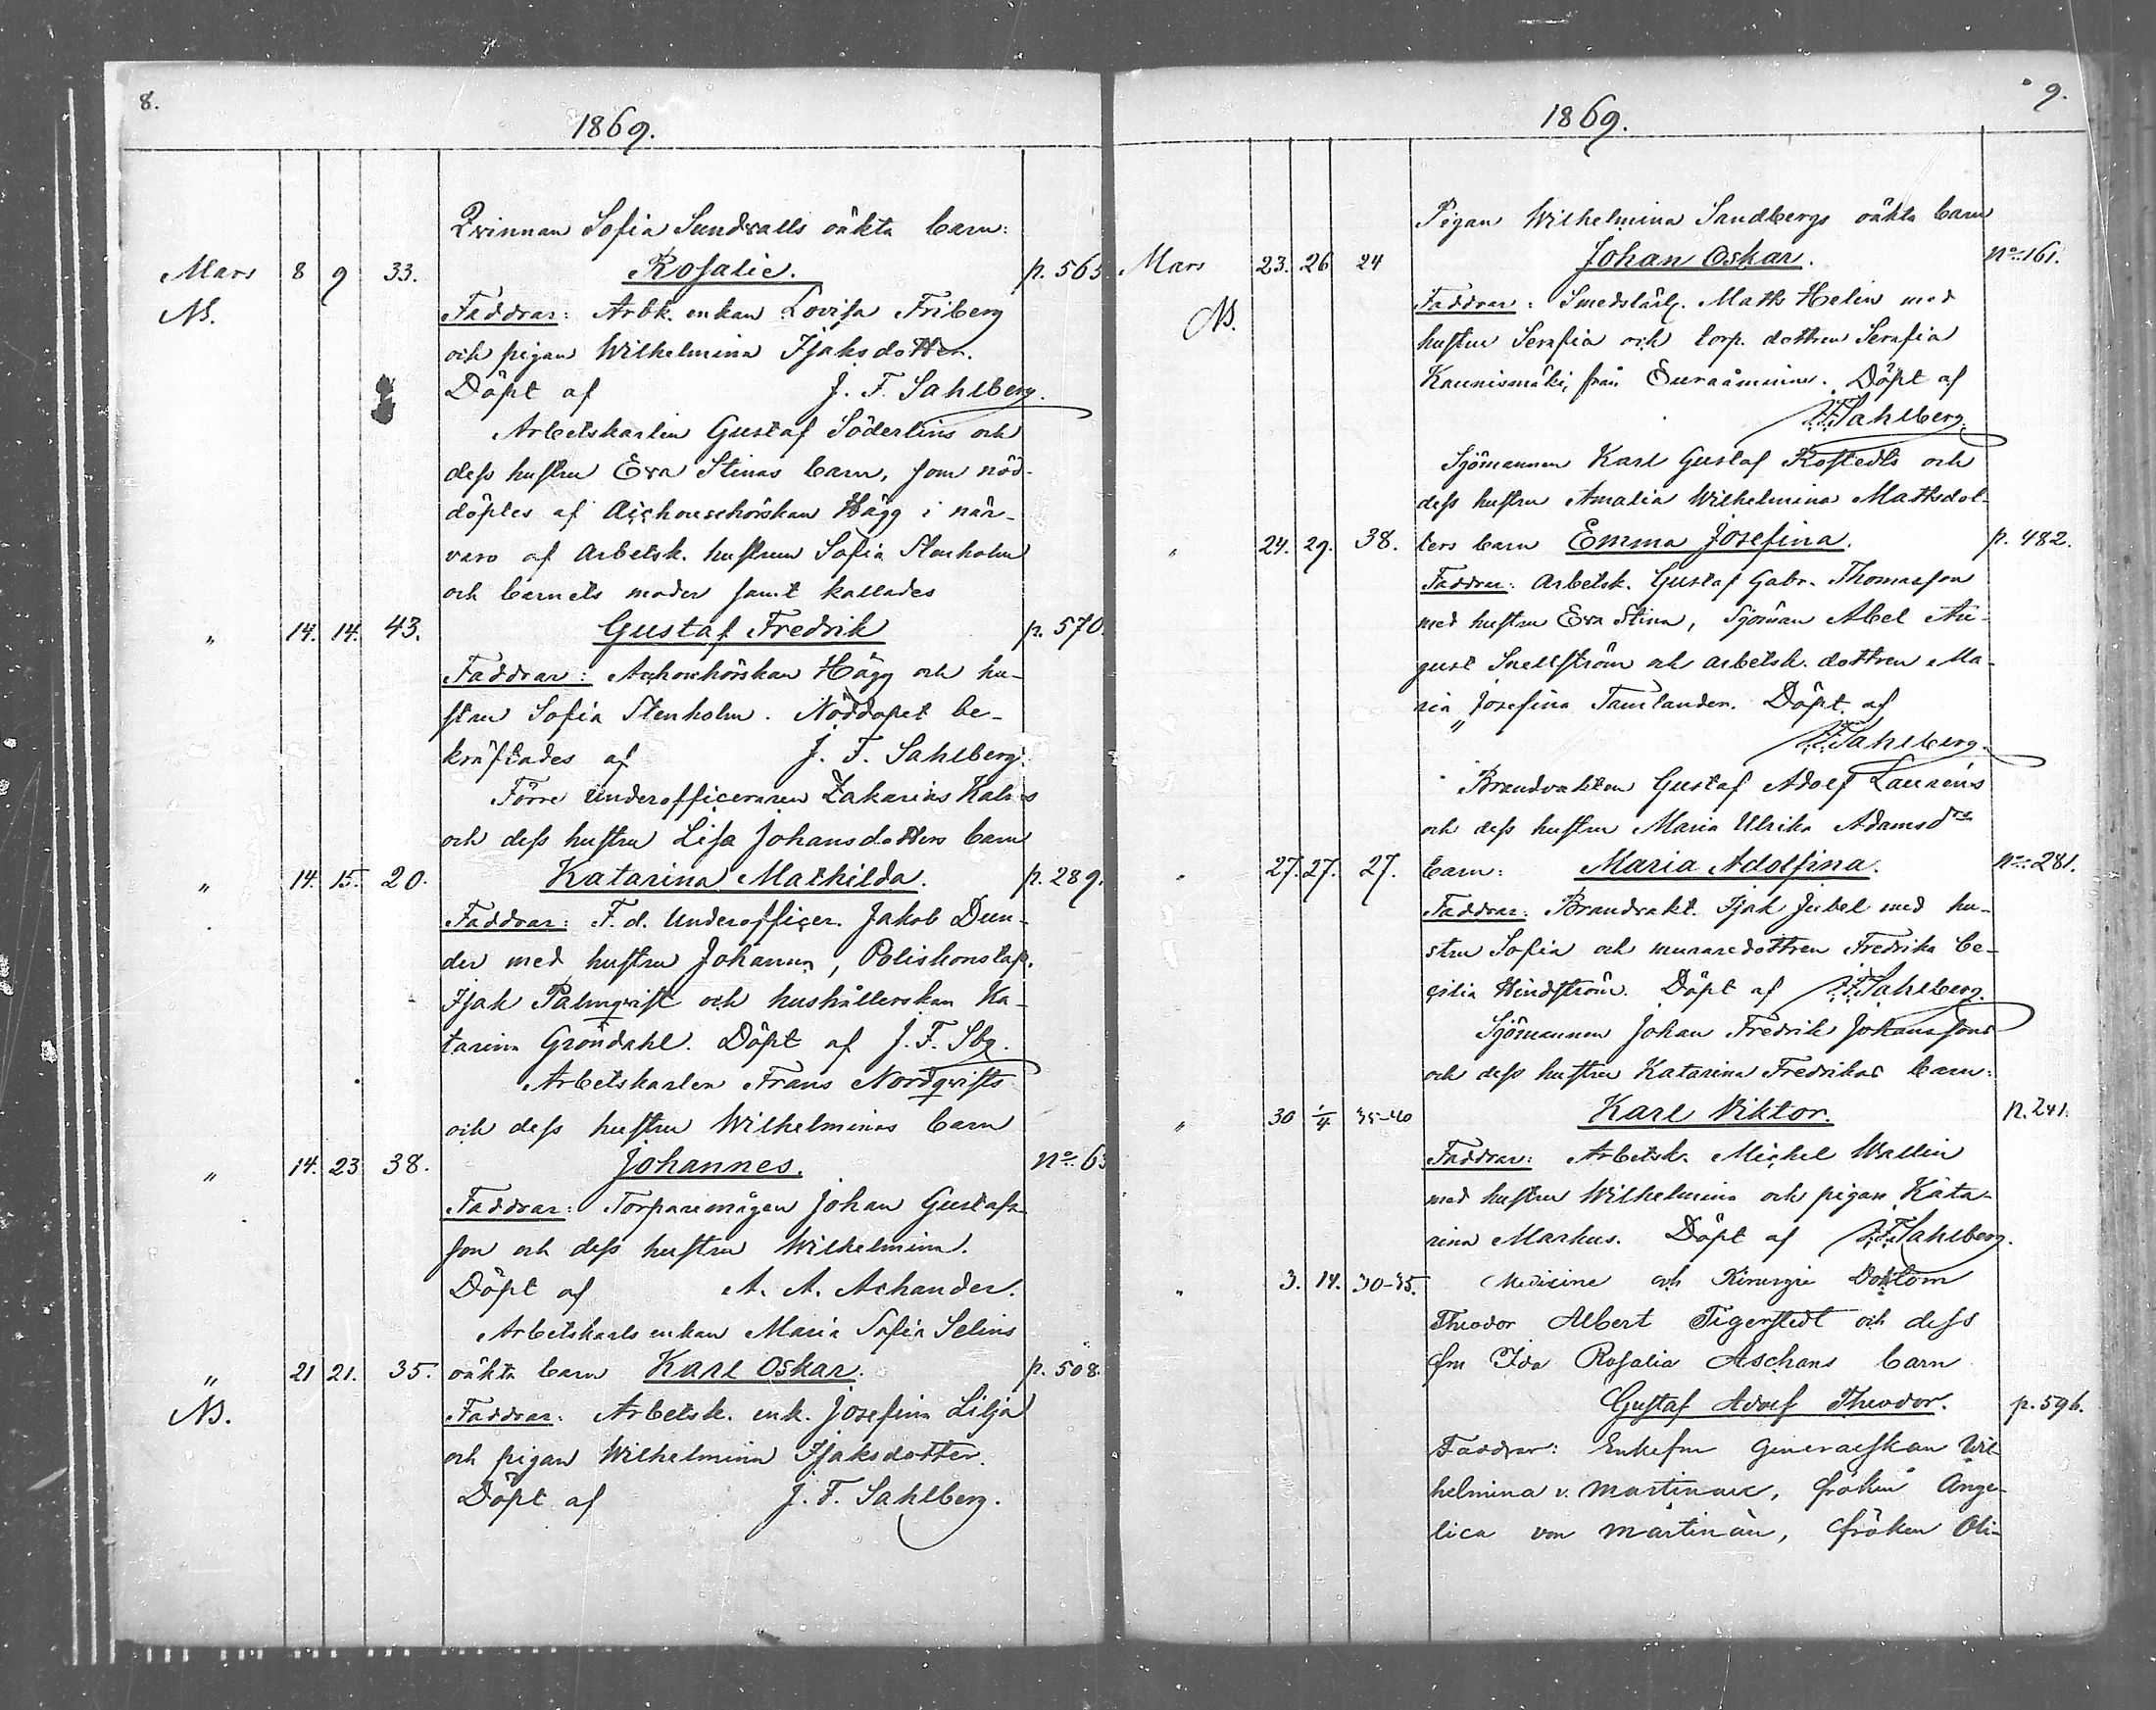 8.
1869.
Qvinnan Sofia Sundvalls oäkta barn:
Mars 8 9 33. Rosalie. p. 565
NB. Faddrar: Arbk. enkan Lovisa Friberg
och pigan Wilhelmina Isaksdotter.
Döpt af J. F. Sahlberg.
Arbetskarlen Gustaf Söderlins och
dess hustru Eva Stinas barn, som nöd-
döptes af Hägg i när-
varo af arbetsk. hustrun Sofia Stenholm
och barnets moder samt kallades
" 14. 14. 43. Gustaf Fredrik p. 570.
Faddrar: Hägg och hu-
stru Sofia Stenholm. Nöddopet be-
kräftades af J. F. Sahlberg.
Förre underofficeraren Zakarias
och dess hustru Lisa Johansdotters barn
" 14. 15. 20. Katarina Mathilda. p. 289.
Faddrar: F. d. Underofficer. Jakob Dun-
der med hustru Johanna, Poliskonstap.
Isak Palmqvist och hushållerskan Ka-
tarina Gröndahl. Döpt af J. F. Sbg.
Arbetskarlen Frans Nordqvists
och dess hustru Wilhelminas barn
" 14. 23 38. Johannes. No. 63
Faddrar: Torparemågen Johan Gustafs-
son och dess hustru Wilhelmina.
Döpt af A. A. Achander.
Arbetskarls enkan Maria Sofia Selins
" 21 21. 35. oäkta barn Karl Oskar. p. 508.
NB. Faddrar: Arbetsk. enk. Josefina Lilja
och pigan Wilhelmina Isaksdotter.
Döpt af J. F. Sahlberg.
9.
1869.
Pigan Wilhelmina Sandbergs oäkta barn
Mars 23. 26 24 Johan Oskar. No. 161.
NB. Faddrar: Smedslärl. Maths Helin med
hustru Serafia och torp. dottren Serafia
Kaunismäki, från Euraåminne. Döpt af
J. F. Sahlberg.
Sjömannen Karl Gustaf Rostedts och
dess hustru Amalia Wilhelmina Mathsdot-
" 24. 29. 38. ters barn Emma Josefina. p. 482.
Faddrar: Arbetsk. Gustaf Gabr. Thomasson
med hustru Eva Stina, Sjöman Abel Au-
gust Snellström och arbetsk. dottren Ma-
ria Josefina Tamlander. Döpt af
J. F. Sahlberg.
Brandvakten Gustaf Adolf Lauréns
och dess hustru Maria Ulrika Adamsdrs
" 27. 27. 27. barn: Maria Adolfina. No. 281.
Faddrar: Brandvakt. Isak Jubel med hu-
stru Sofia och muraredottren Fredrika Ce-
cilia Windström. Döpt af J. F. Sahlberg.
Sjömannen Johan Fredrik Johanssons
och dess hustru Katarina Fredrikas barn:
" 30 1/4 35-40 Karl Viktor. p. 241.
Faddrar: Arbetsk. Michel Wallin
med hustru Wilhelmina och pigan Kata-
rina Markus. Döpt af J. F. Sahlberg.
" 3. 14. 30-35. Medicine och Kirurgie Doktorn
Theodor Albert Tigerstedt och dess
fru Ida Rosalia Aschans barn
Gustaf Adolf Theodor. p. 596.
Faddrar: Enkefru Generalskan Wil-
helmina v. Martinau, fröken Ange-
lica von Martinau, fröken Oli-